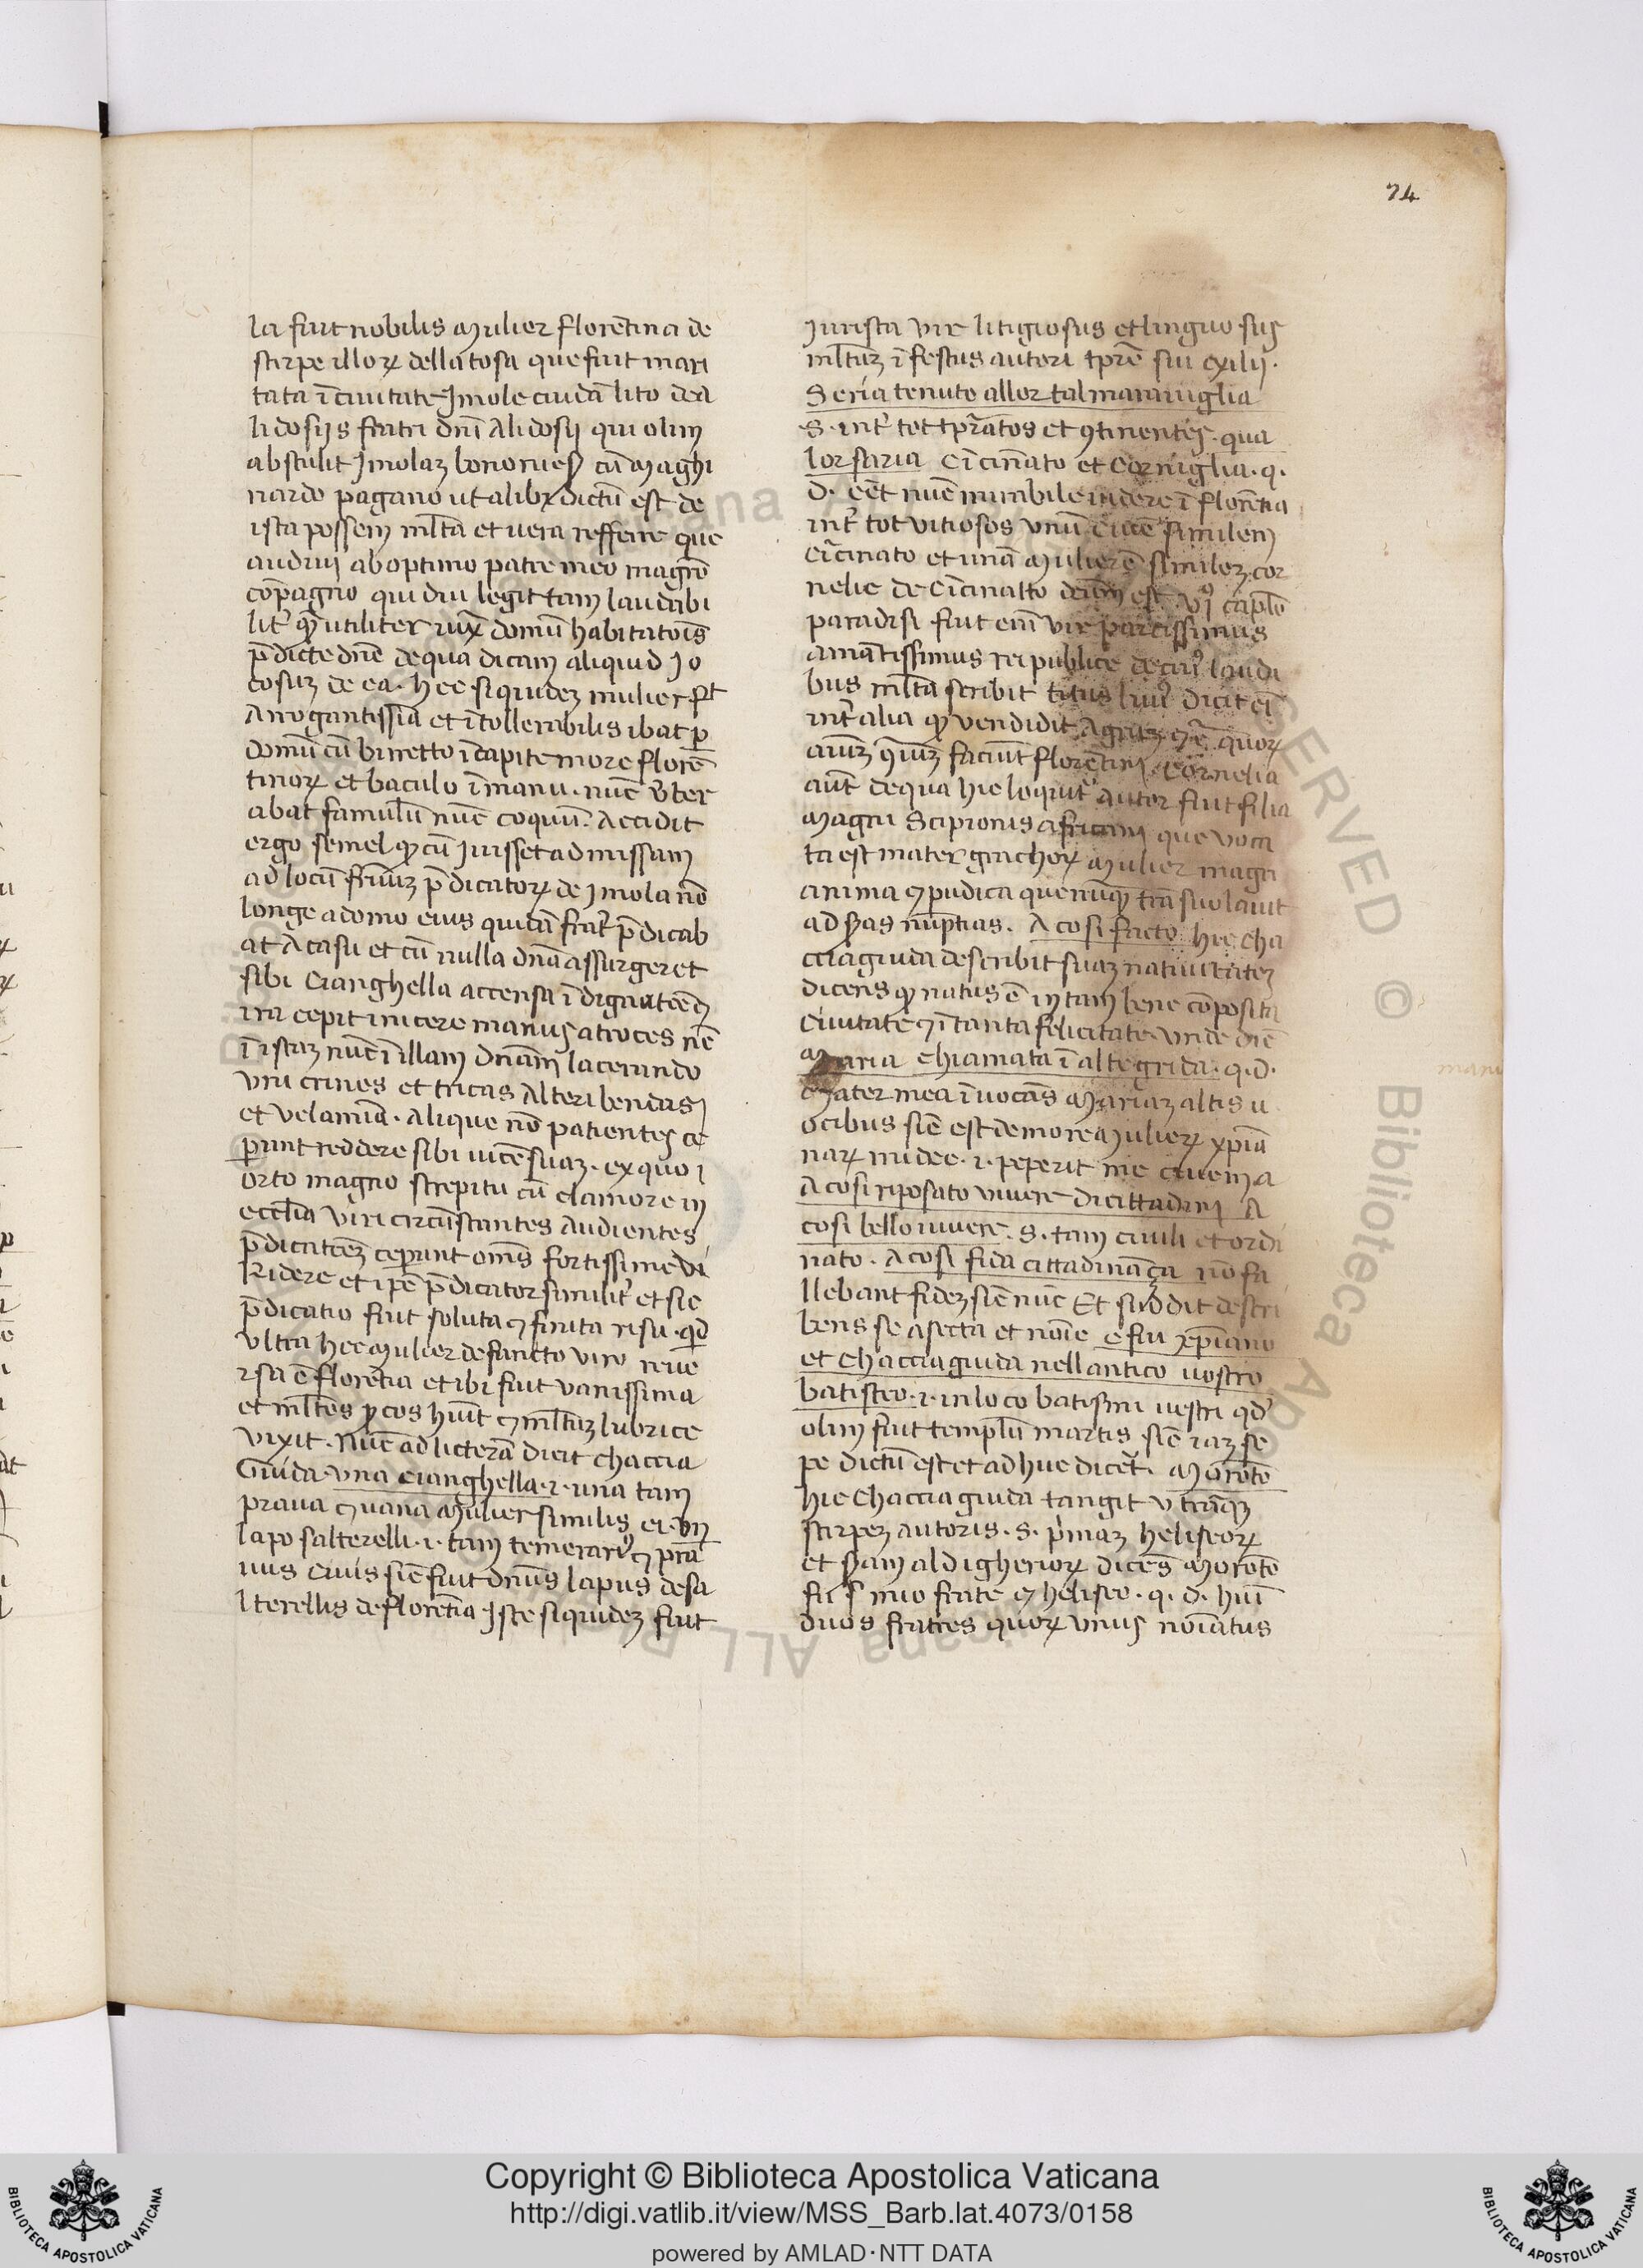 74
la fuit nobilis mulier florētina de
stirpe illoꝝ della tosa que fuit mari
tata ī ciuitate Jmole cuidā lito de a
lidosijs fratri dn̄i Alidosij qui olim
abstulit Jmolaz bononieſ cū maghi
nardo pagano ut alibi dictū est de
ista possem ml̄ta et uera refferre que
audiui ab optimo patre meo magr̄o
cōpagno qui diu legit tam laudabi
lit᷑ ꝙ utiliter iux̄ domū habitatōis
p̄dicte dn̄e de qua dicam aliquid Jo
cosuz de ea. hec siquidez mulier ft
Arrogantissīa et ītollerabilis ibat ꝑ
domū cū birretto ī capite more florē
tinoꝝ et baculo ī manu. nūc v̄ber
abat famulū nūc coquū. Accidit
ergo semel ꝙ cū Juisset ad missam
ad locū fr̄uuz p̄dicatoꝝ de Jmola nō
longe a domo eius quidā frat᷑ p̄dicab
at A casu et cū nulla dn̄a assurgeret
sibi Cianghella accensa ī dignatōe ⁊
ira cepit inicere manus atroces nūc
ī istaz nūc ī illam dn̄am lacerando
vni crines et tricas Alteri bendas
et velamīa. Alique nō patientes ce
perunt reddere sibi uicē suaz. ex quo i
orto magno strepitu cū clamore in
eccl̄ia viri circūstantes Audientes
p̄dicatōez ceperunt om̄s fortissime di
Ridere et ip̄e p̄dicator similit᷑ et sic
p̄dicatio fuit soluta ⁊ finita risu. qd̄
vltra hec mulier defuncto viro reue
rsa ē florētia et ibi fuit vanissima
et ml̄tos ꝓcos hūit ⁊ ml̄tuz lubrice
vixit. Nūc ad licterā dicit Chaccia
Guida. vna cianghella. i. una tam
praua ⁊ uana mulier similis ei. vn
lapo salterelli. i. tam temerariꝰ ⁊ pra
uus ciuis sic̄ fuit dn̄us lapus de sa
lterellis de florētia Iste siquidez fuit
Jurista vir litigiosus et linguosus
ml̄tuz īfestus autori tp̄re sui exilij.
Seria tenuto allor tal marauiglia
S. int᷑ tot tp̄ratos et ꝯtinentes. qua
lor saria Cīcinato et Corniglia. q.
d. eēt nūc mirabile uidere ī florētia
int᷑ tot vitiosos vnū ciuē similem
Cīcinato et unā mulierē similez cor
nelie de Cīcinatto dc̄m est vjꝰ capl̄o
paradisi fuit enī vir parcissimus
amātissimus rei publice de cuiꝰ laudi
bus ml̄ta scribit titus liuiꝰ dicit eī
int᷑ alia ꝙ vendidit
faciūt florētini. Cornelia
aūt de qua hic loquit᷑ autor fuit filia
magni Scipionis africani que voca
ta est mater grachoꝝ mulier magni
animi ⁊ pudica que nūꝙ trāsuolauit
ad nuptias. A cosi facto hic cha
cciaguida describit suaz natiuitatez
dicens ꝙ natus ē in tam bene cōposita
ciuitate ⁊ ī tanta felicitate. vnde dic̄
Maria chiamata ī alte grida. q. d.
Mater mea īuocās Mariaz altis u
ocibus sic̄ est de more mulieꝝ xp̄ia
naꝝ mi dee. i. peperit me ciuem a
A cosi riposato viuere di cittadini A
cosi bello uiuere. S. tam ciuili et ordi
nato. A cosi fida cittadināça nō fa
llebant fidez sic̄ nūc Et subdit descri
bens se a secta et noīe e fui xp̄iano
et Chacciaguida nell antico uostro
batisteo. i. in loco batismi uestri qd̄
olim fuit templū martis sic̄ iaz se
pe dictū est et adhuc dicet᷑. Morōto
hic Chacciaguida tangit vtrāqz
stirpez autoris. S. p̄maz heliseoꝝ
et aldigherioꝝ dicēs Morōto
fu mio frate ⁊ heliseo. q. d. hūi
duos fratres quoꝝ vnus noīatus
Copyright © Biblioteca Apostolica Vaticana
http://digi.vatlib.it/view/MSS_Barb.lat.4073/0158
powered by AMLAD·NTT DATA
BIBLIOTECA APOSTOLICA VATICANA
BIBLIOTECA APOSTOLICA VATICANA